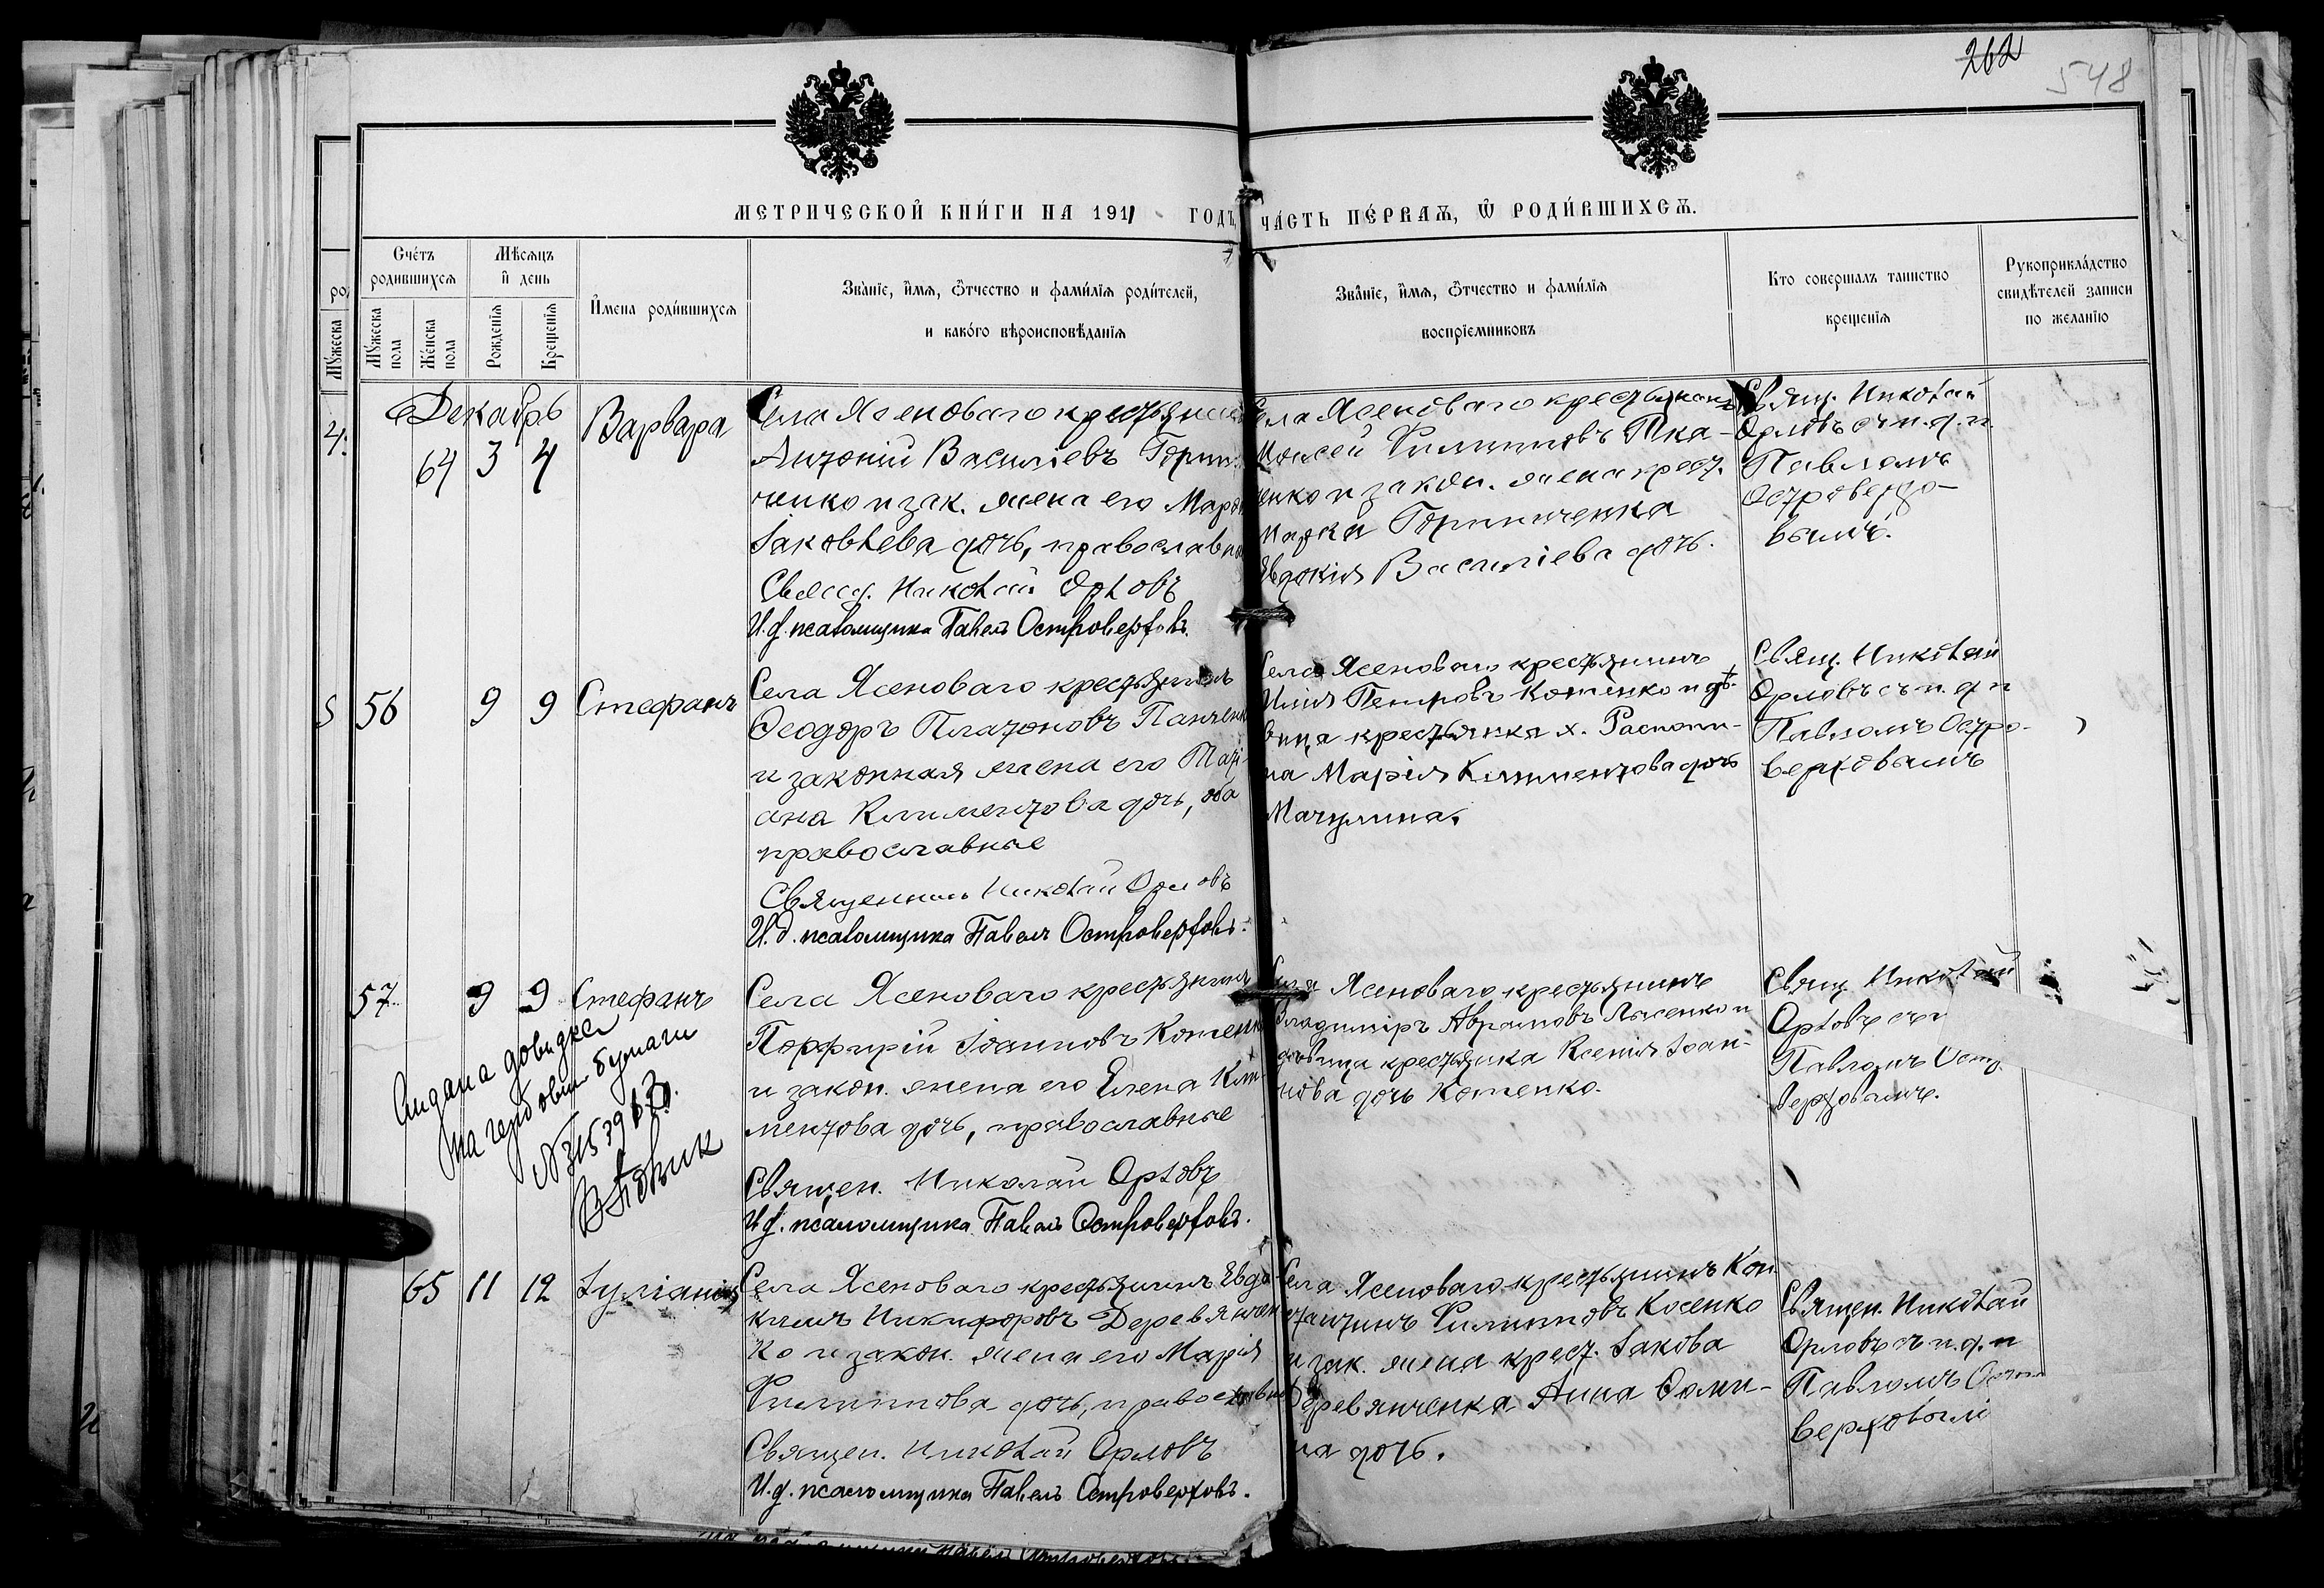 262
548
МЕТРИЧЕСКОЙ КНИ́ГИ НА 1911 ГОДЪ, ЧА́СТЬ ПЕ́РВАѦ, Ѿ РОДИ́ВШИХСѦ.
Сче́тъ родившихсѧ
Мꙋ́жеска пола
Же́нска пола
Мѣсѧцъ и день
Рожденїѧ
Крещенїѧ
И҆мена роди́вшихсѧ
Зва́нїе, и҆мѧ, ѻ҆́тчество и фами́лїѧ роди́телей,
и како́го вѣроисповѣ́данїѧ
Зва́нїе, и҆мѧ, ѻ҆́тчество и фами́лїѧ
воспрїемниковъ
Кто соверша́лъ таинство
крещенїѧ
Рукоприкла́дство
свидѣ́телей записи
по жела́нїю
Декабрь
64 3 4 Варвара
Села Ясеноваго крестьянинъ
Антоній Василіевъ Горпин-
ченко и зак. жена его Марѳа
Іаковлева дочь, православные
Свящ. Николай Орловъ
И.д. псаломщика Павелъ Островерховъ.
Села Ясеноваго крестьянинъ
Моисей Филипповъ Тка-
ченко и закон. жена крест.
Марка Горпинченка
Евдокія Василіева дочь.
Свящ. Николай
Орловъ съ и.д.п.
Павломъ
Островерхо-
вымъ.
56 9 9 Стефанъ
Села Ясеноваго крестьянинъ
Ѳеодоръ Платоновъ Панченко
и законная жена его Таті-
ана Климентова дочь, оба
православные
Священникъ Николай Орловъ
И.д. псаломщика Павелъ Островерховъ.
Села Ясеноваго крестьянинъ
Илія Петровъ Котенко и дѣ-
вица крестьянка х. Распопи-
на Марія Климентова дочь
Мачулина.
Свящ. Николай
Орловъ съ и.д.п
Павломъ Остро-
верховымъ
57 9 9 Стефанъ
Видана довидка
на гербовим бумаги
Села Ясеноваго крестьянинъ
Порфирій Іоанновъ Котенко
и закон. жена его Елена Кли-
ментова дочь, православные
Священ. Николай Орловъ
И.д. псаломщика Павелъ Островерховъ.
Села Ясеноваго крестьянинъ
Владиміръ Аврамовъ Лысенко и
дѣвица крестьянка Ксенія Іоан-
нова дочь Котенко.
Свящ. Николай
Орловъ съ и
Павломъ Остр
верховымъ.
65 11 12 Іуліанія
Села Ясеноваго крестьянинъ Евдо-
кимъ Никифоровъ Деревянчен-
ко и закон. жена его Марія
Филиппова дочь, православные
Священ. Николай Орловъ
И.д. псаломщика Павелъ Островерховъ.
Села Ясеноваго крестьянинъ Кон-
стантинъ Филипповъ Косенко
и зак. жена крест. Іакова
Деревянченка Анна Ѳоми-
на дочь.
Священ. Николай
Орловъ съ и.д.п
Павломъ Остро
верховымъ